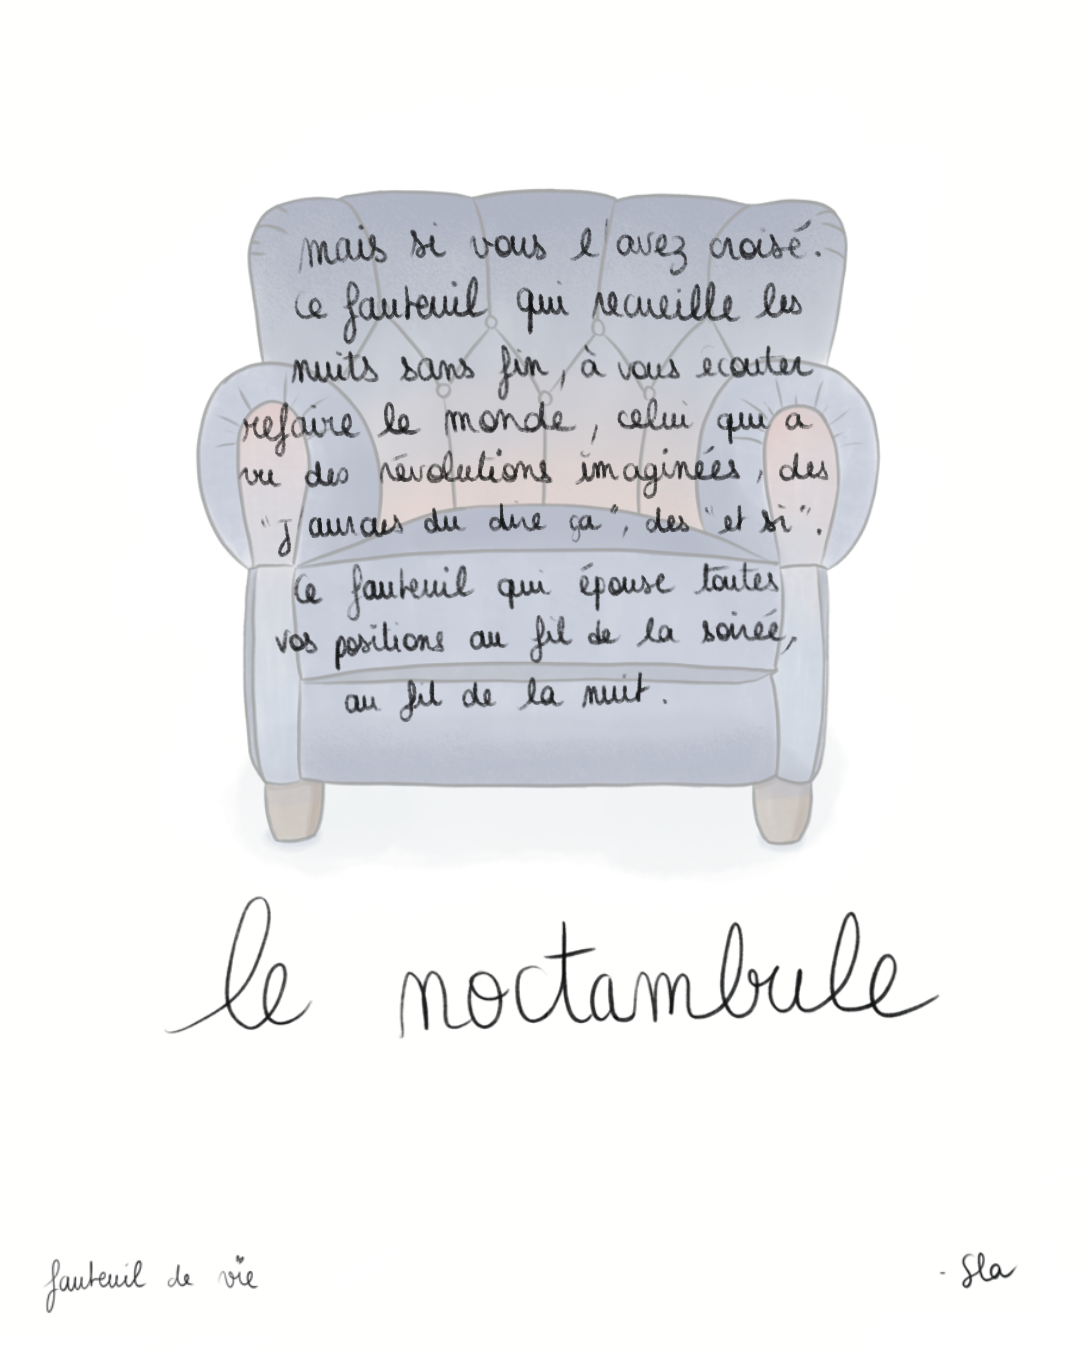 mais si vous l'avez croisé.
Ce fauteuil qui recueille les
nuits sans fin, à vous ecouter
refaire le monde, celui qui a
vu des révolutions imaginées, des
"j'aurais du dire ça", des "et si".
Ce fauteuil qui épouse toutes
vos positions au fil de la soirée,
au fil de la nuit.
le noctambule
fauteuil de vie
- Sla